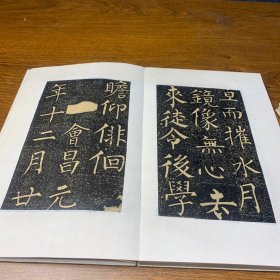 旦而摧水月
鏡像無心去
來徒令後學
瞻仰俳佪
會昌元
年十二月廿